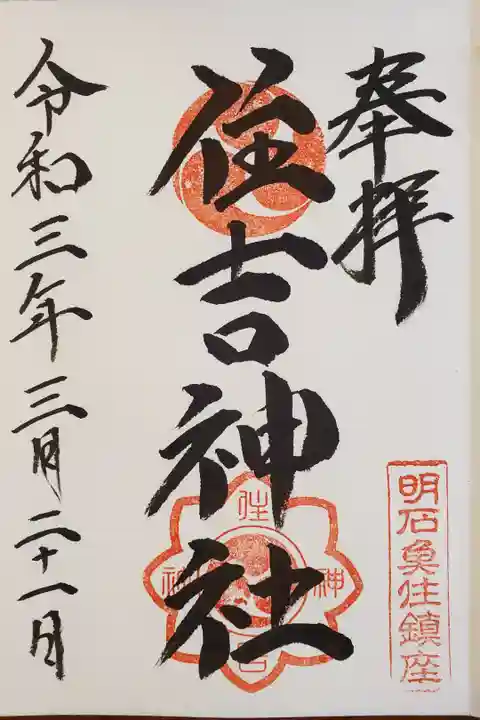 奉拝
明石魚住鎮座
住吉神社
令和三年三月二十一日